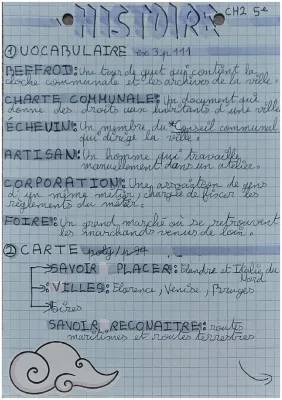 HISTOIRE CH2 5e
① VOCABULAIRE ex 3 p 111
BEFFROI: Une tour de guet qui contient la
cloche communale et les archives de la ville.
CHARTE COMMUNALE: Un document qui
donne des droits aux habitants d'une ville
ÉCHEVIN: Un membre du "Conseil communal
qui dirige la ville.
ARTISAN: Un homme qui travaille
manuellement dans un atelier.
CORPORATION: Une association de gens
d'un même métier, chargée de fixer les
règlements du métier.
FOIRE: Un grand marché où se retrouvent
les marchands venus de loin.
② CARTE poly/p 94
SAVOIR PLACER: Flandre et Italie du
Nord
VILLES: Florence, Venise, Bruges
Foires
SAVOIR RECONAITRE: routes
maritimes et routes terrestres